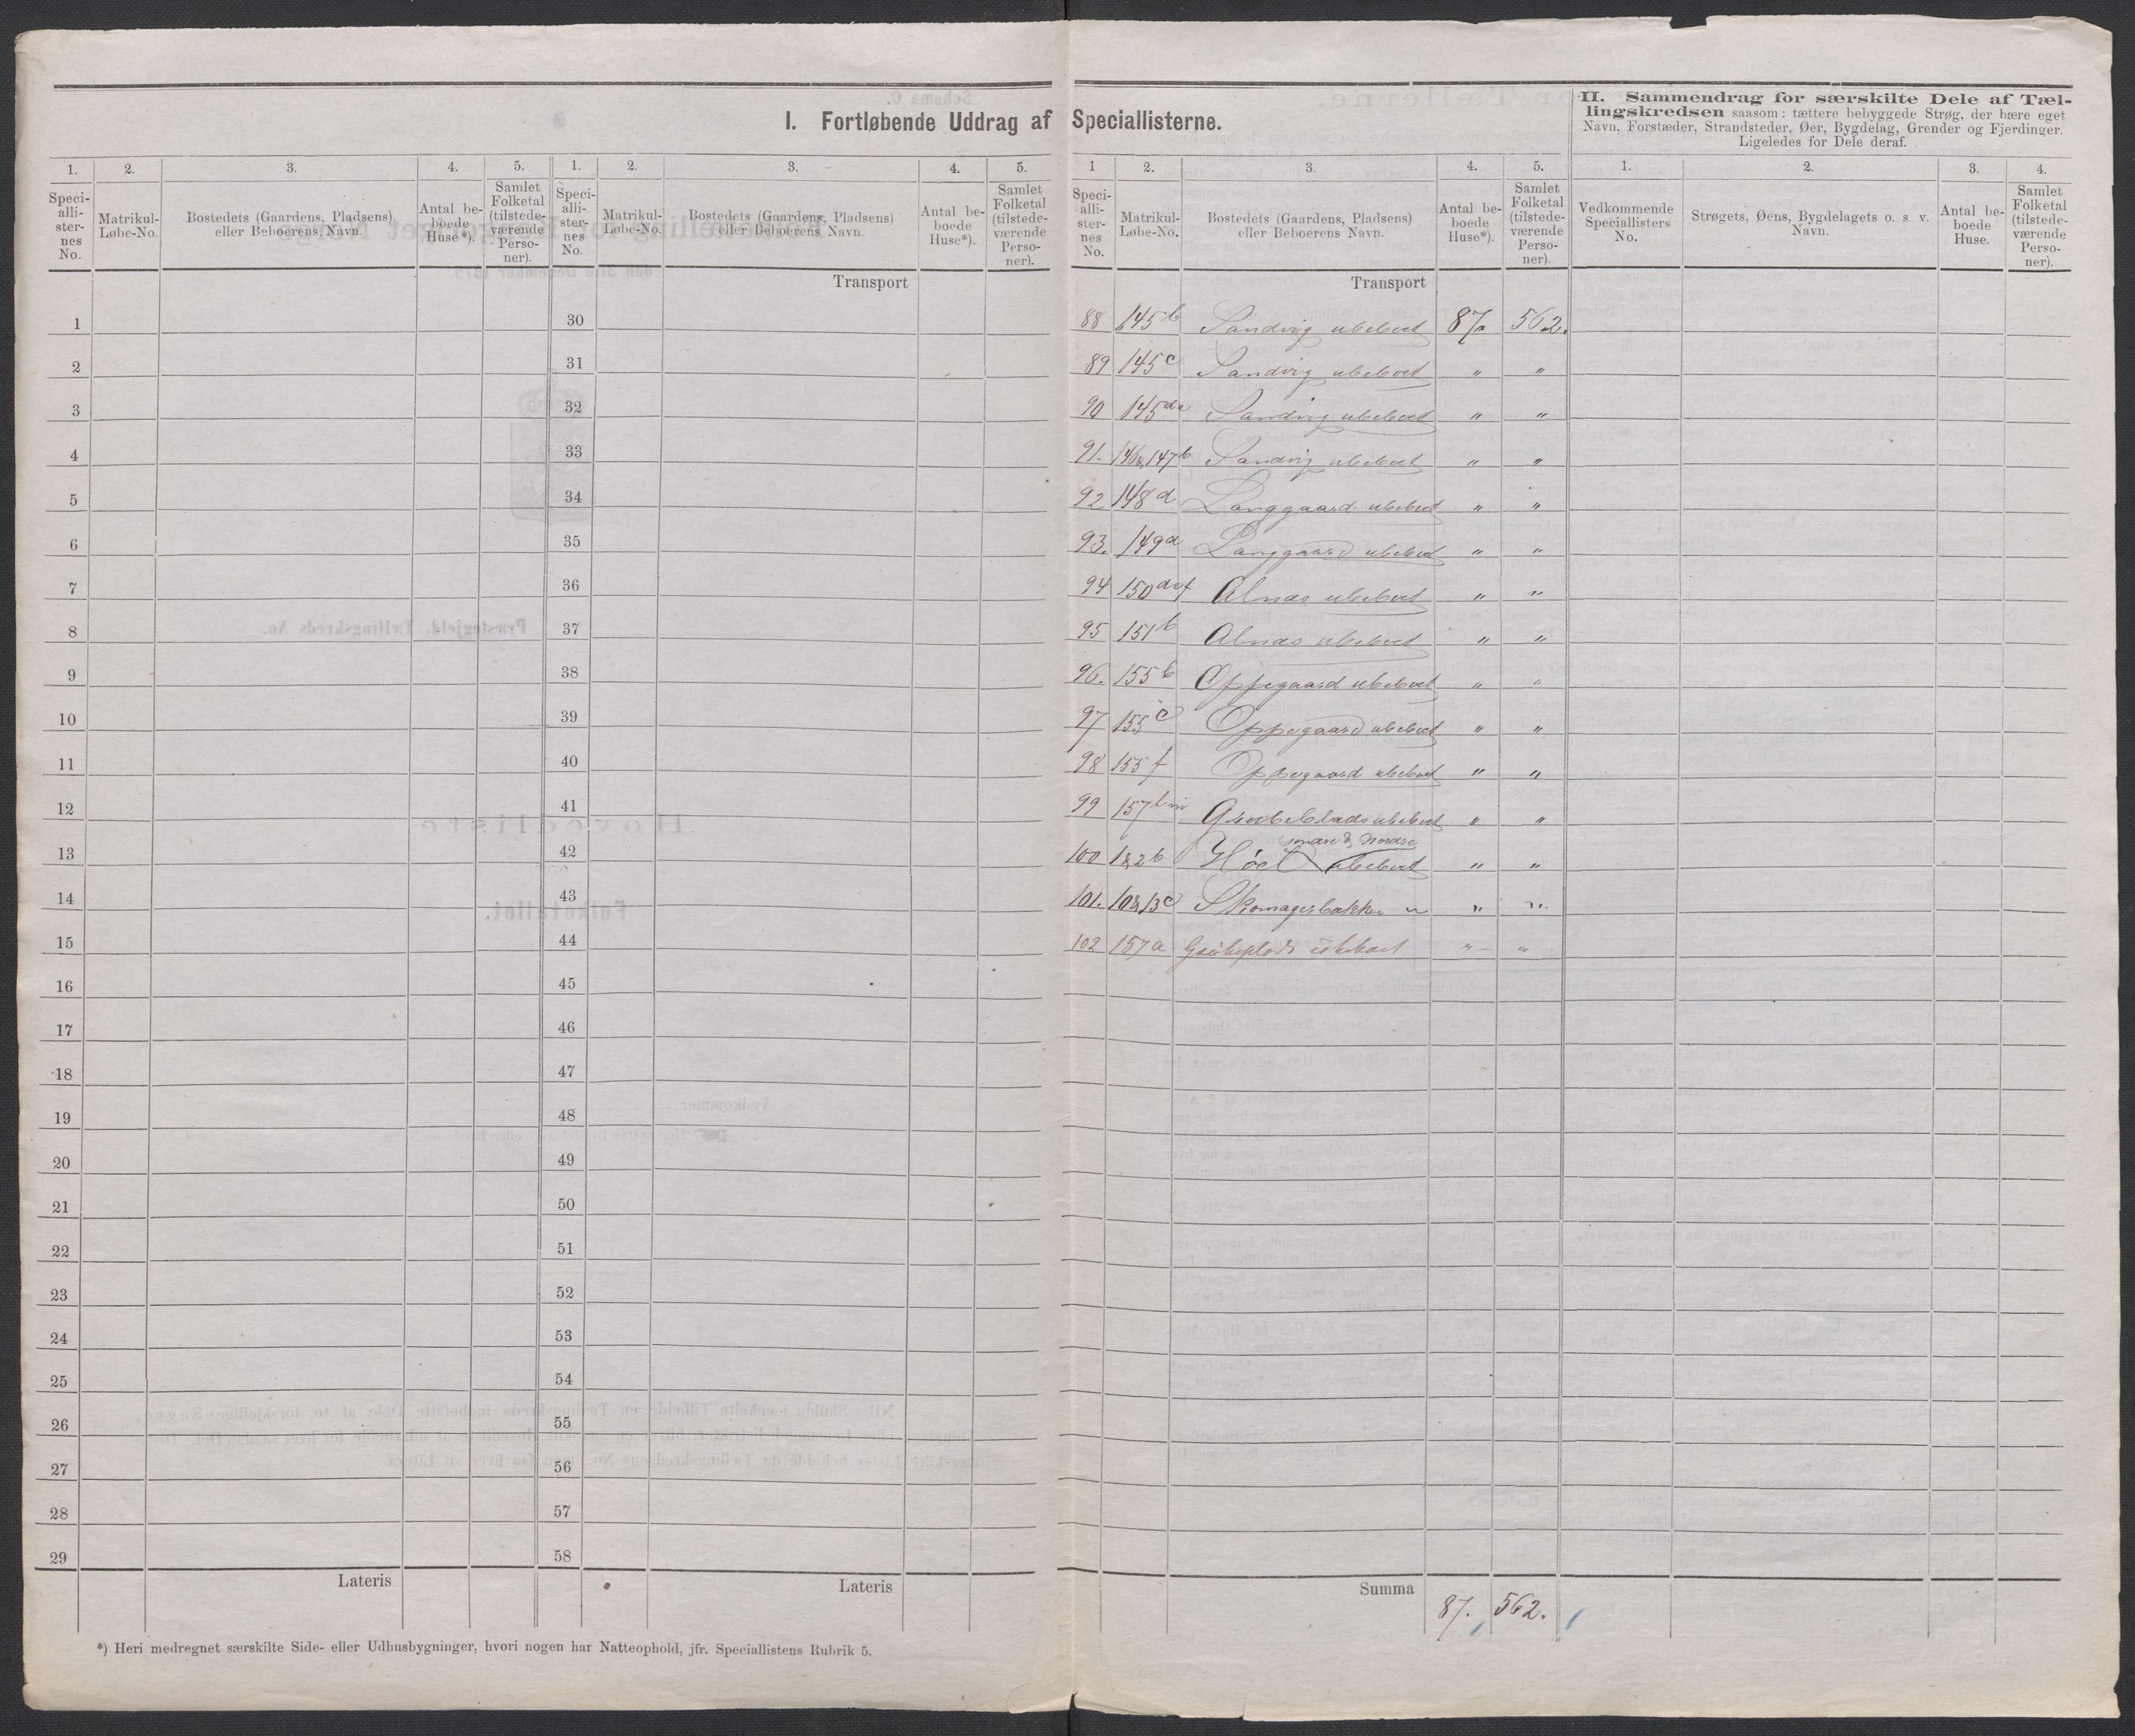 I. Fortløbende Uddrag af Speciallisterne.
II. Sammendrag for særskilte Dele af Tæl-
lingskredsen saasom: tættere bebyggede Strøg, der bære eget
Navn, Forstæder, Strandsteder, Øer, Bygdelag, Grender og Fjerdinger.
Ligeledes for Dele deraf.
1. 2. 3. 4. 5. 1. 2. 3. 4. 5. 1 2. 3. 4. 5. 1. 2. 3. 4.
Speci-alli-ster-nes No. Matrikul-Løbe-No. Bostedets (Gaardens, Pladsens) eller Beboerens Navn. Antal be-boede Huse*). Samlet Folketal (tilstede-værende Perso-ner).
Speci-alli-ster-nes No. Matrikul-Løbe-No. Bostedets (Gaardens, Pladsens) eller Beboerens Navn. Antal be-boede Huse*). Samlet Folketal (tilstede-værende Perso-ner).
Speci-alli-ster-nes No. Matrikul-Løbe-No. Bostedets (Gaardens, Pladsens) eller Beboerens Navn. Antal be-boede Huse*). Samlet Folketal (tilstede-værende Perso-ner).
Vedkommende Speciallisters No. Strøgets, Øens, Bygdelagets o. s. v. Navn. Antal be-boede Huse. Samlet Folketal (tilstede-værende Perso-ner).
Transport Transport
1 30 88 145b Sandvig ubeboet 87. 562.
2 31 89 145c Sandvig ubeboet " "
3 32 90 145da Sandvig ubeboet " "
4 33 91. 146&147b Sandvig ubeboet " "
5 34 92 148d Langgaard ubeboet " "
6 35 93. 149d Langgaard ubeboet " "
7 36 94 150 Alnæs ubeboet " "
8 37 95 151b Alnæs ubeboet " "
9 38 96. 155b Oppegaard ubeboet " "
10 39 97 155c Oppegaard ubeboet " "
11 40 98 155f Oppegaard ubeboet " "
12 41 99 157 ubeboet " "
søndre & Nordre
13 42 100 1&2b Høel ubeboet " "
14 43 101. 10&13c Skomagerbakken " " "
15 44 102 157a ubeboet " "
16 45
17 46
18 47
19 48
20 49
21 50
22 51
23 52
24 53
25 54
26 55
27 56
28 57
29 58
Lateris Lateris Summa 87. 562.
*) Heri medregnet særskilte Side- eller Udhusbygninger, hvori nogen har Natteophold, jfr. Speciallistens Rubrik 5.